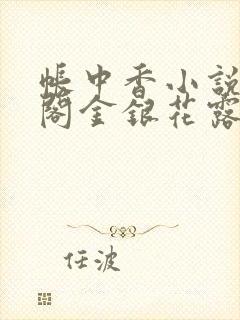 帳中香小説
閣金銀花露
任波